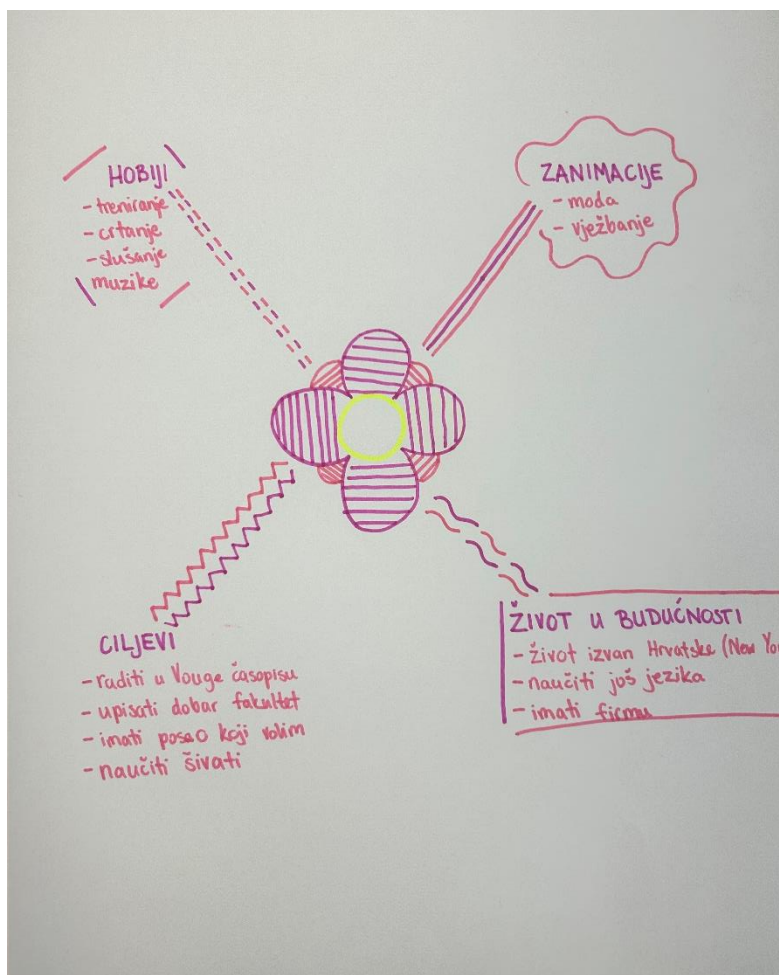 HOBIJI
- treniranje
- crtanje
- slušanje
muzike
ZANIMACIJE
- moda
- vježbanje
CILJEVI
- raditi u Vouge časopisu
- upisati dobar fakultet
- imati posao koji volim
- naučiti šivati
ŽIVOT U BUDUĆNOSTI
- život izvan Hrvatske (New Yo
- naučiti još jezika
- imati firmu